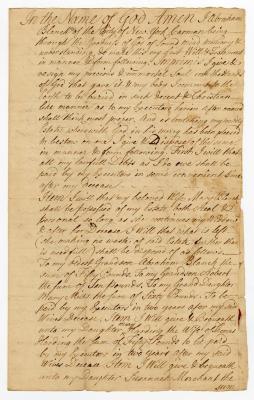 In the Name of God Amen I Abraham
Blanck of the City of New York Carman being
through the Goodness of God of sound mind memory &
understanding, do make this my last Will & Testament
in manner & form following. Imprimis I give &
resign my precious & immortal Soul into the Hands
of God that gave it & my body I commit to the
Earth to be buried in such decent & Christian
like manner as to my Executors herein after named
shall think most proper. And as touching my worldly
Estate wherewith God in his mercy has been pleased
to bestow on me I give & Dispose of the same
in manner & form following. First I will that
all my lawfull Debts as I do owe shall be
paid by my Executors in some convenient time
after my Decease.
Item I will that my beloved Wife
shall be possessed of my Estate both Real &
personal so long as she continues my Widow
& after her Decease I Will that what is left
(she making no waste of said Estate further than
is needfull) shall be disposed of as follows.
To my eldest Grandson Abraham Blanck the
sum of Fifty Pounds To my Grandson
the sum of Ten Pounds To my Grand Daughter
Mary the sum of Sixty Pounds To be
paid by my Executors in two years after my said
Wives Decease Item I Will give & bequeath
unto my Daughter Mary Harding the Wife of
Harding the sum of Fifty Pounds to be paid
by my Executors in two years after my said
Wives Decease Item I Will give & bequeath
unto my Daughter Susannah the
sum